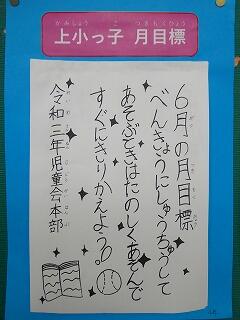 かみしょう こ つきもくひょう
上小っ子 月目標
６月の月目標
べんきょうにしゅうちゅうして
あそぶときはたのしくあそんで
すぐにきりかえよう！
令和三年児童会本部